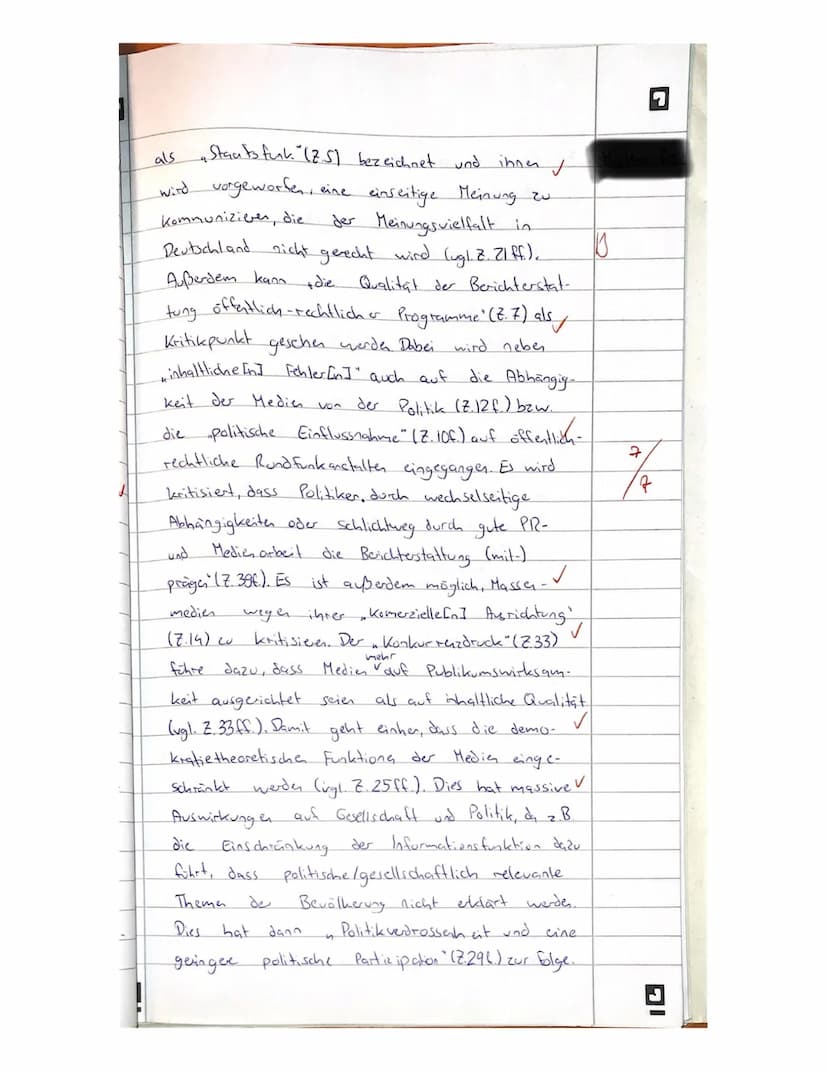 als „Staatsfunk" (Z.5) bezeichnet und ihnen
wird vorgeworfen, eine einseitige Meinung zu
kommunizieren, die der Meinungsvielfalt in
Deutschland nicht gerecht wird (vgl. Z. 21 ff.).
Außerdem kann „die Qualität der Berichterstat-
tung öffentlich-rechtlicher Programme" (Z. 7) als
Kritikpunkt gesehen werden. Dabei wird neben
„inhaltliche[n] Fehler[n]" auch auf die Abhängig-
keit der Medien von der Politik (Z.12f.) bzw.
die „politische Einflussnahme" (Z.10f.) auf öffentlich-
rechtliche Rundfunkanstalten eingegangen. Es wird
kritisiert, dass Politiker „durch wechselseitige
Abhängigkeiten oder schlichtweg durch gute PR-
und Medienarbeit die Berichterstattung (mit-)
prägen" (Z.39f.). Es ist außerdem möglich, Massen-
medien wegen ihrer „komerzielle[n] Ausrichtung"
(Z.14) zu kritisieren. Der „Konkurrenzdruck" (Z.33)
führe dazu, dass Medien mehr auf Publikumswirksam-
keit ausgerichtet seien als auf inhaltliche Qualität
(vgl. Z.33ff.). Damit geht einher, dass die demo-
kratietheoretischen Funktionen der Medien einge-
schränkt werden (vgl. Z.25ff.). Dies hat massive
Auswirkungen auf Gesellschaft und Politik, da z.B
die Einschränkung der Informationsfunktion dazu
führt, dass politische/gesellschaftlich relevante
Themen der Bevölkerung nicht erklärt werden.
Dies hat dann „Politikverdrossenheit und eine
geringe politische Partizipation" (Z.29f.) zur Folge.
7/7